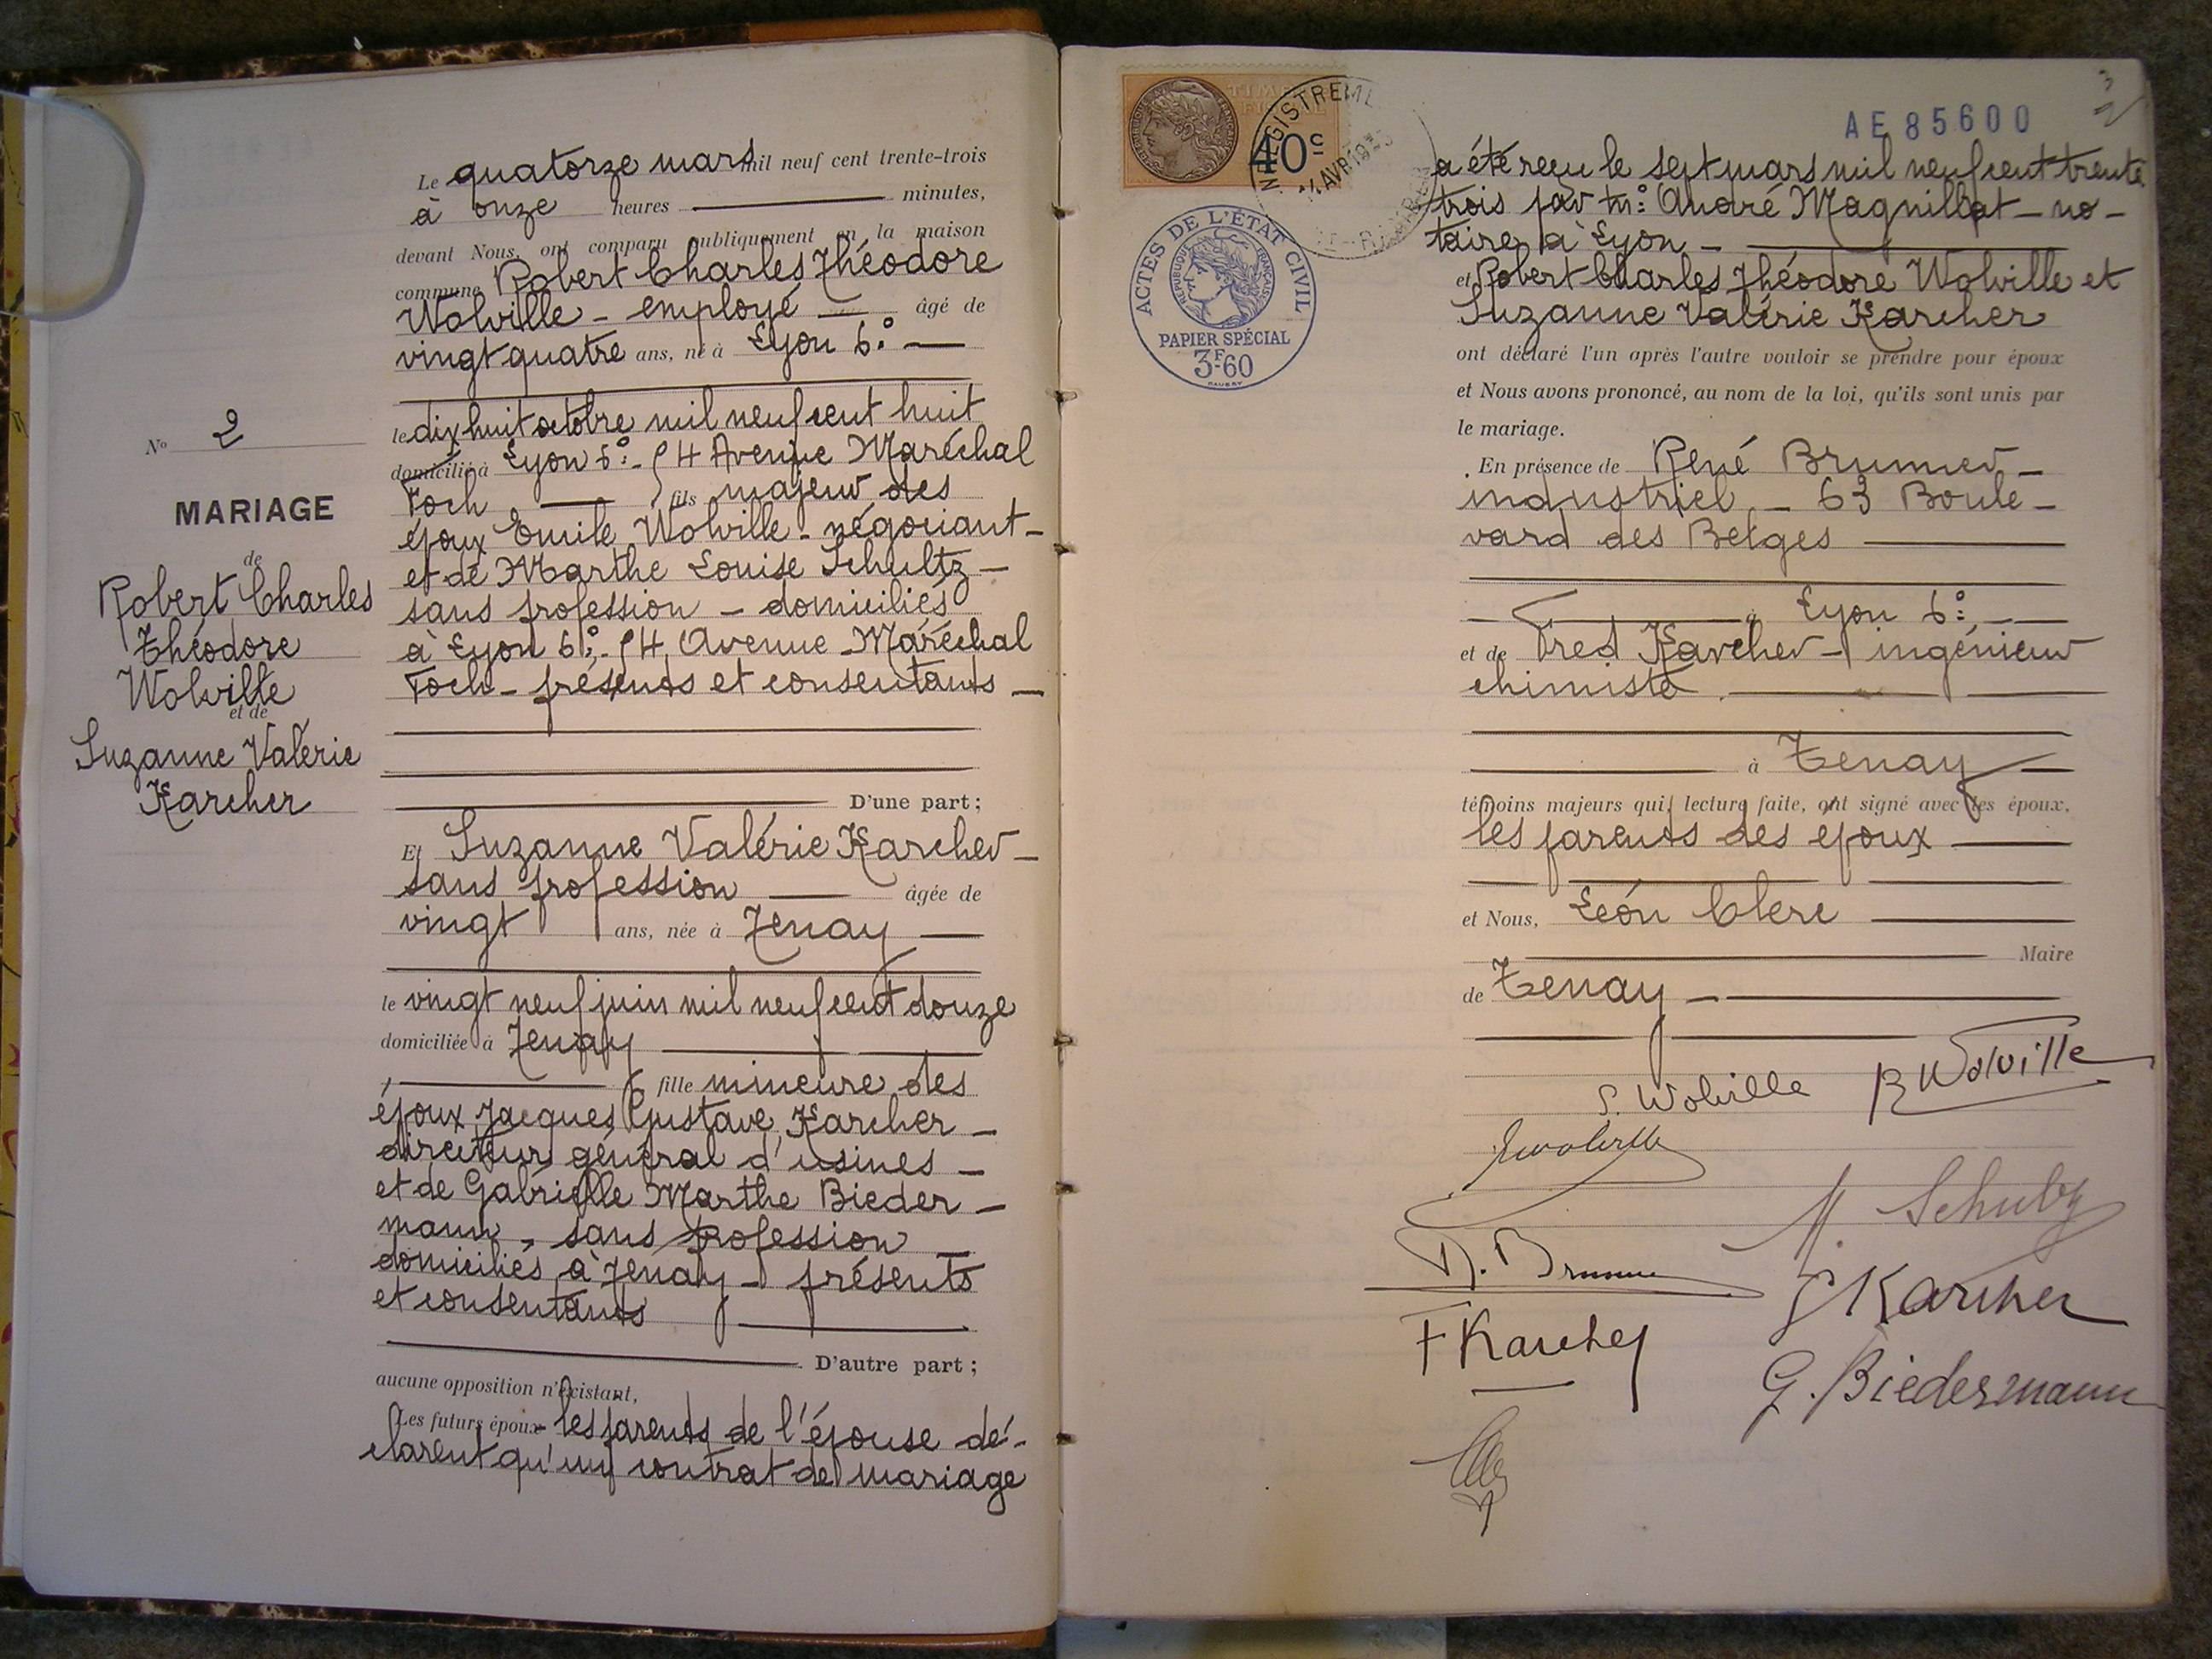 Le quatorze mars mil neuf cent trente-trois
à onze heures minutes,
devant Nous, ont comparu publiquement en la maison
commune Robert Charles Théodore
Wolville - employé âgé de
vingt quatre ans, né à Lyon 6°:
le dix huit octobre mil neuf cent huit
domicilié à Lyon 6°: - 54 Avenue Maréchal
Foch fils majeur des
époux Emile Wolville - négociant -
et de Marthe Louise Schultz -
sans profession - domiciliés
à Lyon 6°: - 54 Avenue Maréchal
Foch - présents et consentants -
D'une part;
Et Suzanne Valérie Karcher -
sans profession âgée de
vingt ans, née à Tenay
le vingt neuf juin mil neuf cent douze
domiciliée à Tenay
fille mineure des
époux Jacques Gustave Karcher -
directeur général d'usines -
et de Gabrielle Marthe Bieder -
mann, sans profession
domiciliés à Tenay - présents
et consentants
D'autre part;
aucune opposition n'existant,
Les futurs époux - les parents de l'épouse dé-
clarent qu'un contrat de mariage
N° 2
MARIAGE
de
Robert Charles
Théodore
Wolville
et de
Suzanne Valérie
Karcher
TIMBRE
FISCAL
40c
ENREGISTREMENT
AVR 1933
ACTES DE L'ÉTAT CIVIL
RÉPUBLIQUE FRANÇAISE
PAPIER SPÉCIAL
3F60
AE 85600
a été reçu le sept mars mil neuf cent trente
trois par M°: André Magnillat - no -
taire à Lyon -
et Robert Charles Théodore Wolville et
Suzanne Valérie Karcher
ont déclaré l'un après l'autre vouloir se prendre pour époux
et Nous avons prononcé, au nom de la loi, qu'ils sont unis par
le mariage.
En présence de René Brunner -
industriel - 63 Boule -
vard des Belges
à Lyon 6°: -
et de Fred Karcher - ingénieur
chimiste
à Tenay
témoins majeurs qui, lecture faite, ont signé avec les époux.
les parents des époux
et Nous, Léon Clerc
Maire
de Tenay -
S. Wolville R Wolville
Ewolville
M. Schultz
R. Brunner
G Karcher
F Karcher
G. Biedermann